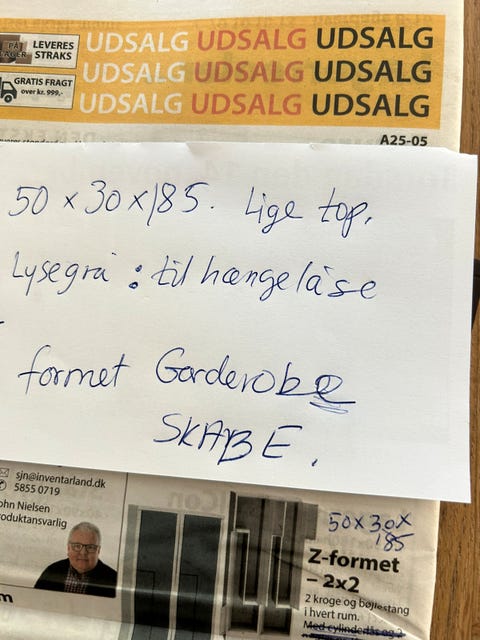 PÅ
LAGER
LEVERES
STRAKS
GRATIS FRAGT
over kr. 999,-
UDSALG UDSALG UDSALG
UDSALG UDSALG UDSALG
UDSALG UDSALG UDSALG
A25-05
50 x 30 x 185. Lige top.
Lysegrå : til hængelåse
formet Garderobe
SKABE.
sjn@inventarland.dk
5855 0719
ohn Nielsen
oduktansvarlig
m
50x30x
185
Z-formet
– 2x2
2 kroge og bøjlestang
i hvert rum.
Med cylinderlås og 2